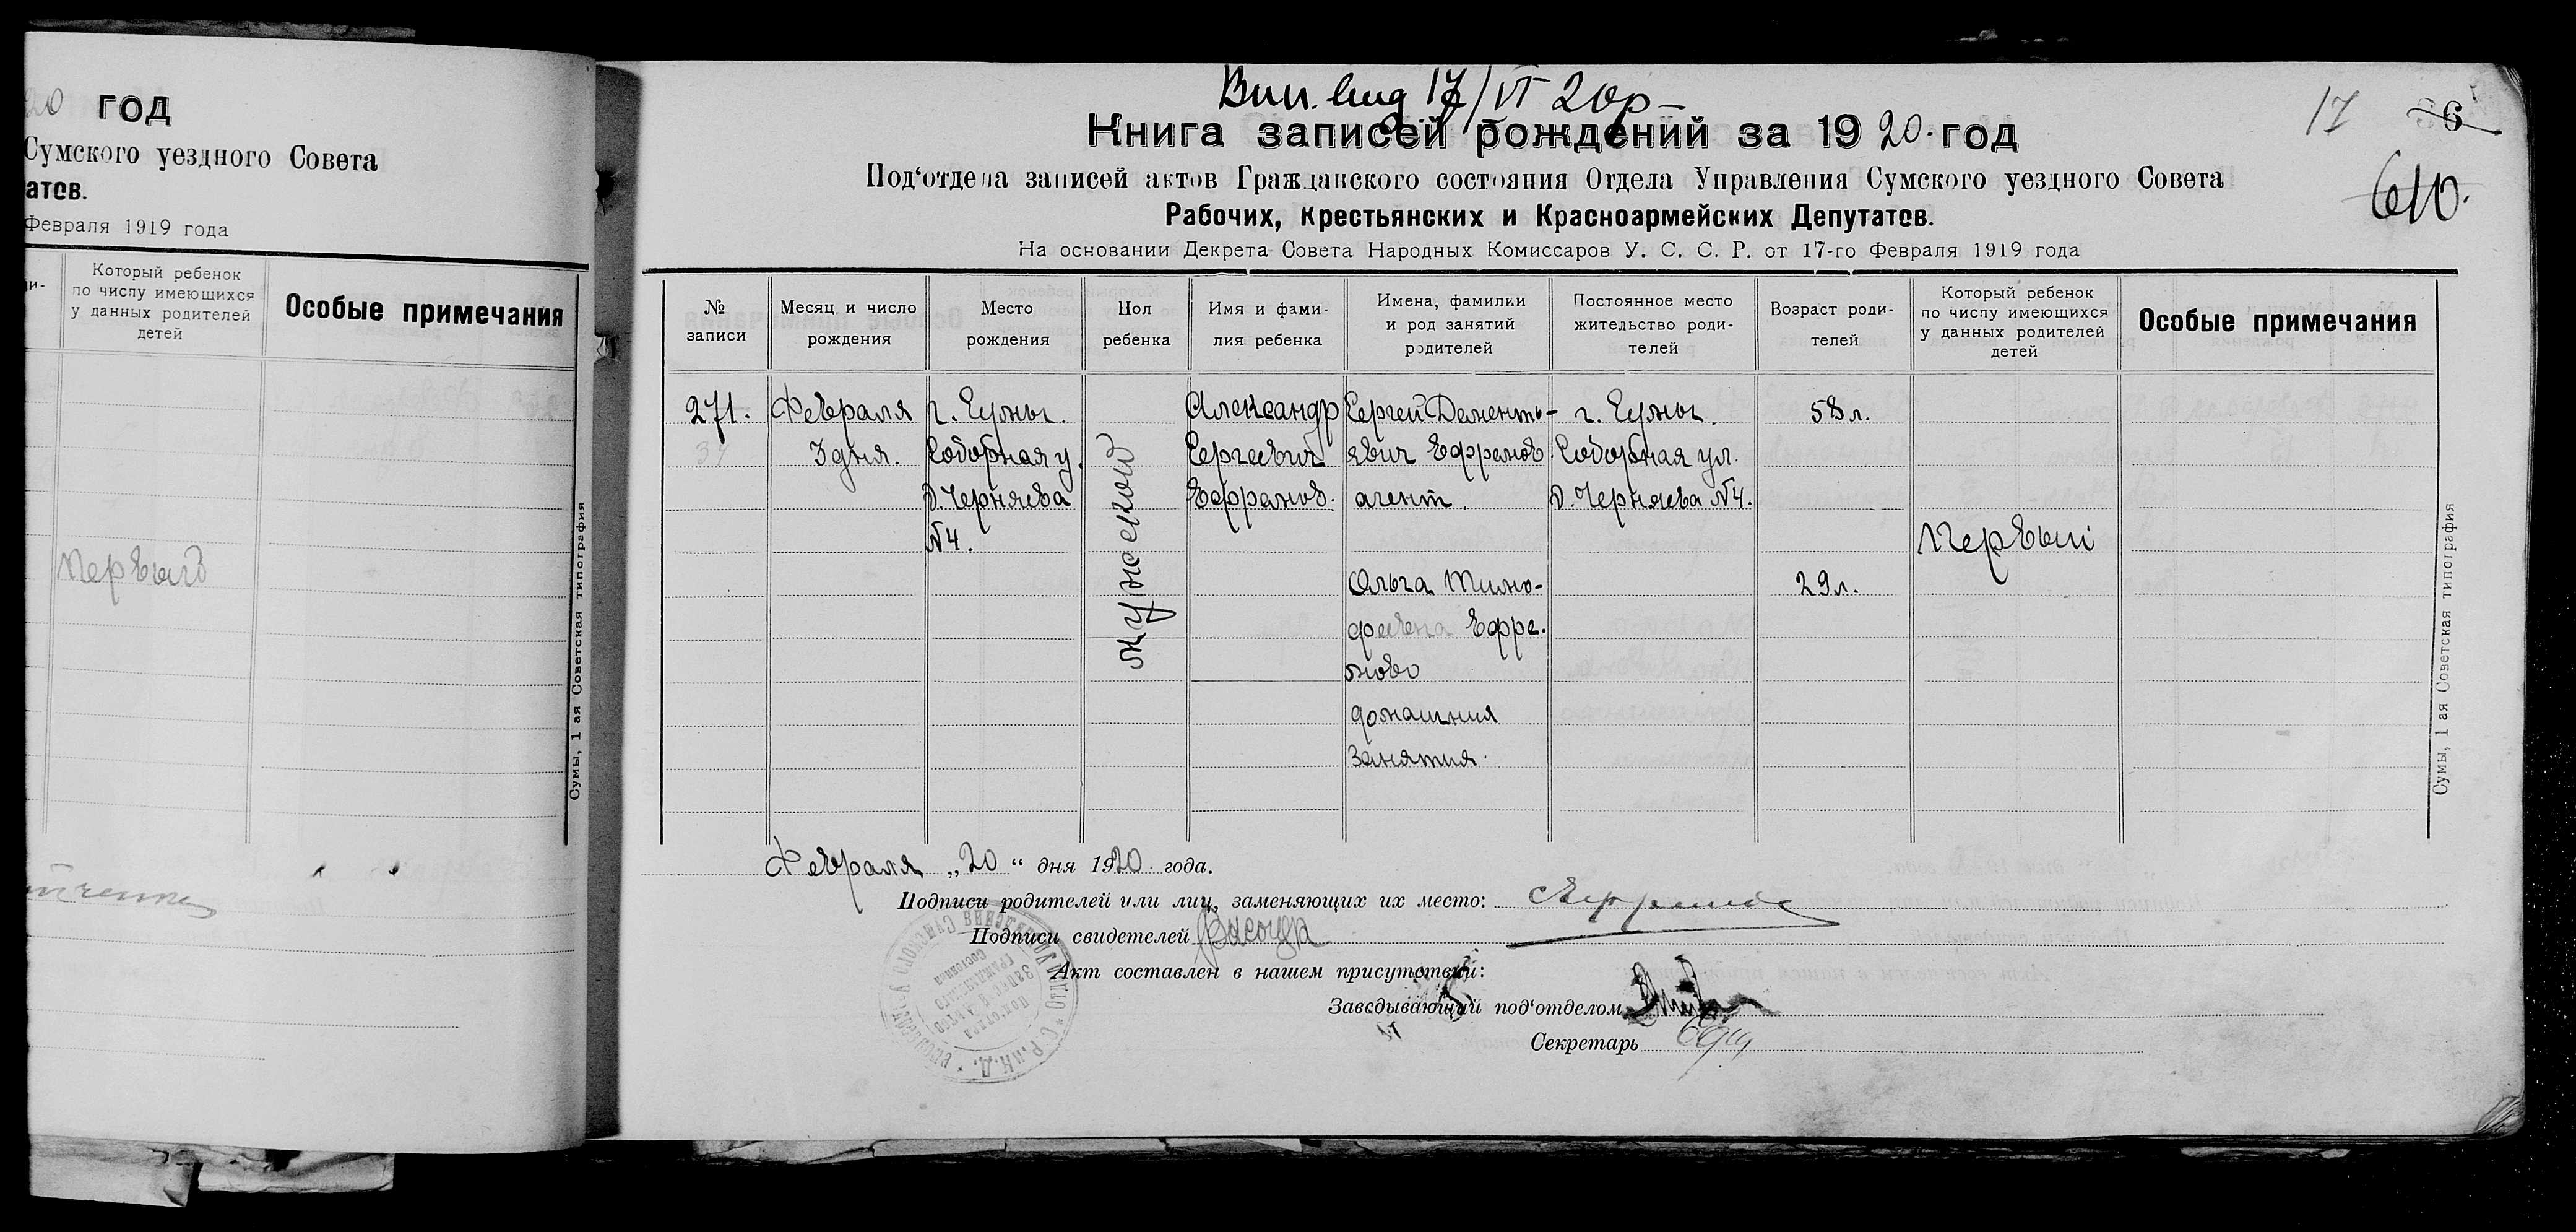 20 год
Сумского уездного Совета
атов.
Февраля 1919 года
Который ребенок
по числу имеющихся
у данных родителей
детей
Особые примечания
Первый
Сумы, 1 ая Советская типография
Вип. вид 17/VI 20р
17
6
610.
Книга записей рождений за 1920. год
Под‘отдела записей актов Гражданского состояния Отдела Управления Сумского уездного Совета
Рабочих, Крестьянских и Красноармейских Депутатов.
На основании Декрета Совета Народных Комиссаров У. С. С. Р. от 17-го Февраля 1919 года
№
записи
Месяц и число
рождения
Место
рождения
Пол
ребенка
Имя и фами-
лия ребенка
Имена, фамилии
и род занятий
родителей
Постоянное место
жительство роди-
телей
Возраст роди-
телей
Который ребенок
по числу имеющихся
у данных родителей
детей
Особые примечания
271.
Февраля
3 дня.
г. Сумы.
Соборная у.
д. Черняева
№4.
мужской
Александр
Сергеевич
Ефремов.
Сергей Дементь-
евич Ефремов
агент.
Ольга Тимо-
феевна Ефре-
мово
домашния
занятия.
г. Сумы.
Соборная ул.
д. Черняева №4.
58 л.
29 л.
Первый
Сумы, 1 ая Советская типография
Февраля „20“ дня 1920 года.
Подписи родителей или лиц, заменяющих их место: СЕфремов
Подписи свидетелей
Акт составлен в нашем присутствии:
Заведывающий под‘отделом
Секретарь